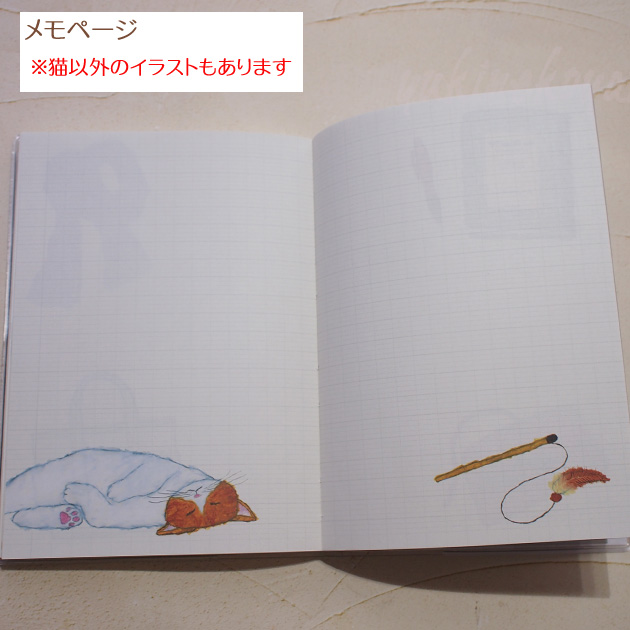 メモページ
※猫以外のイラストもあります